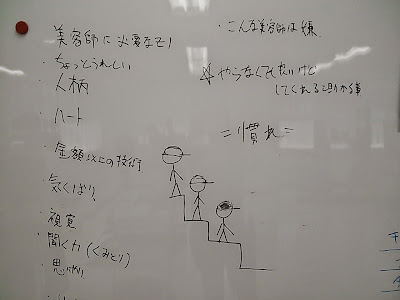 美容師に必要なモノ
・ちょっとうれしい
・人柄
・ハート
・金額以上の技術
・気くばり
・視覚
・聞く力(くみとり)
・思いやり
・こんな美容師は嫌
☆やらなくてもいいけど
してくれると助かる事
=慣れ=